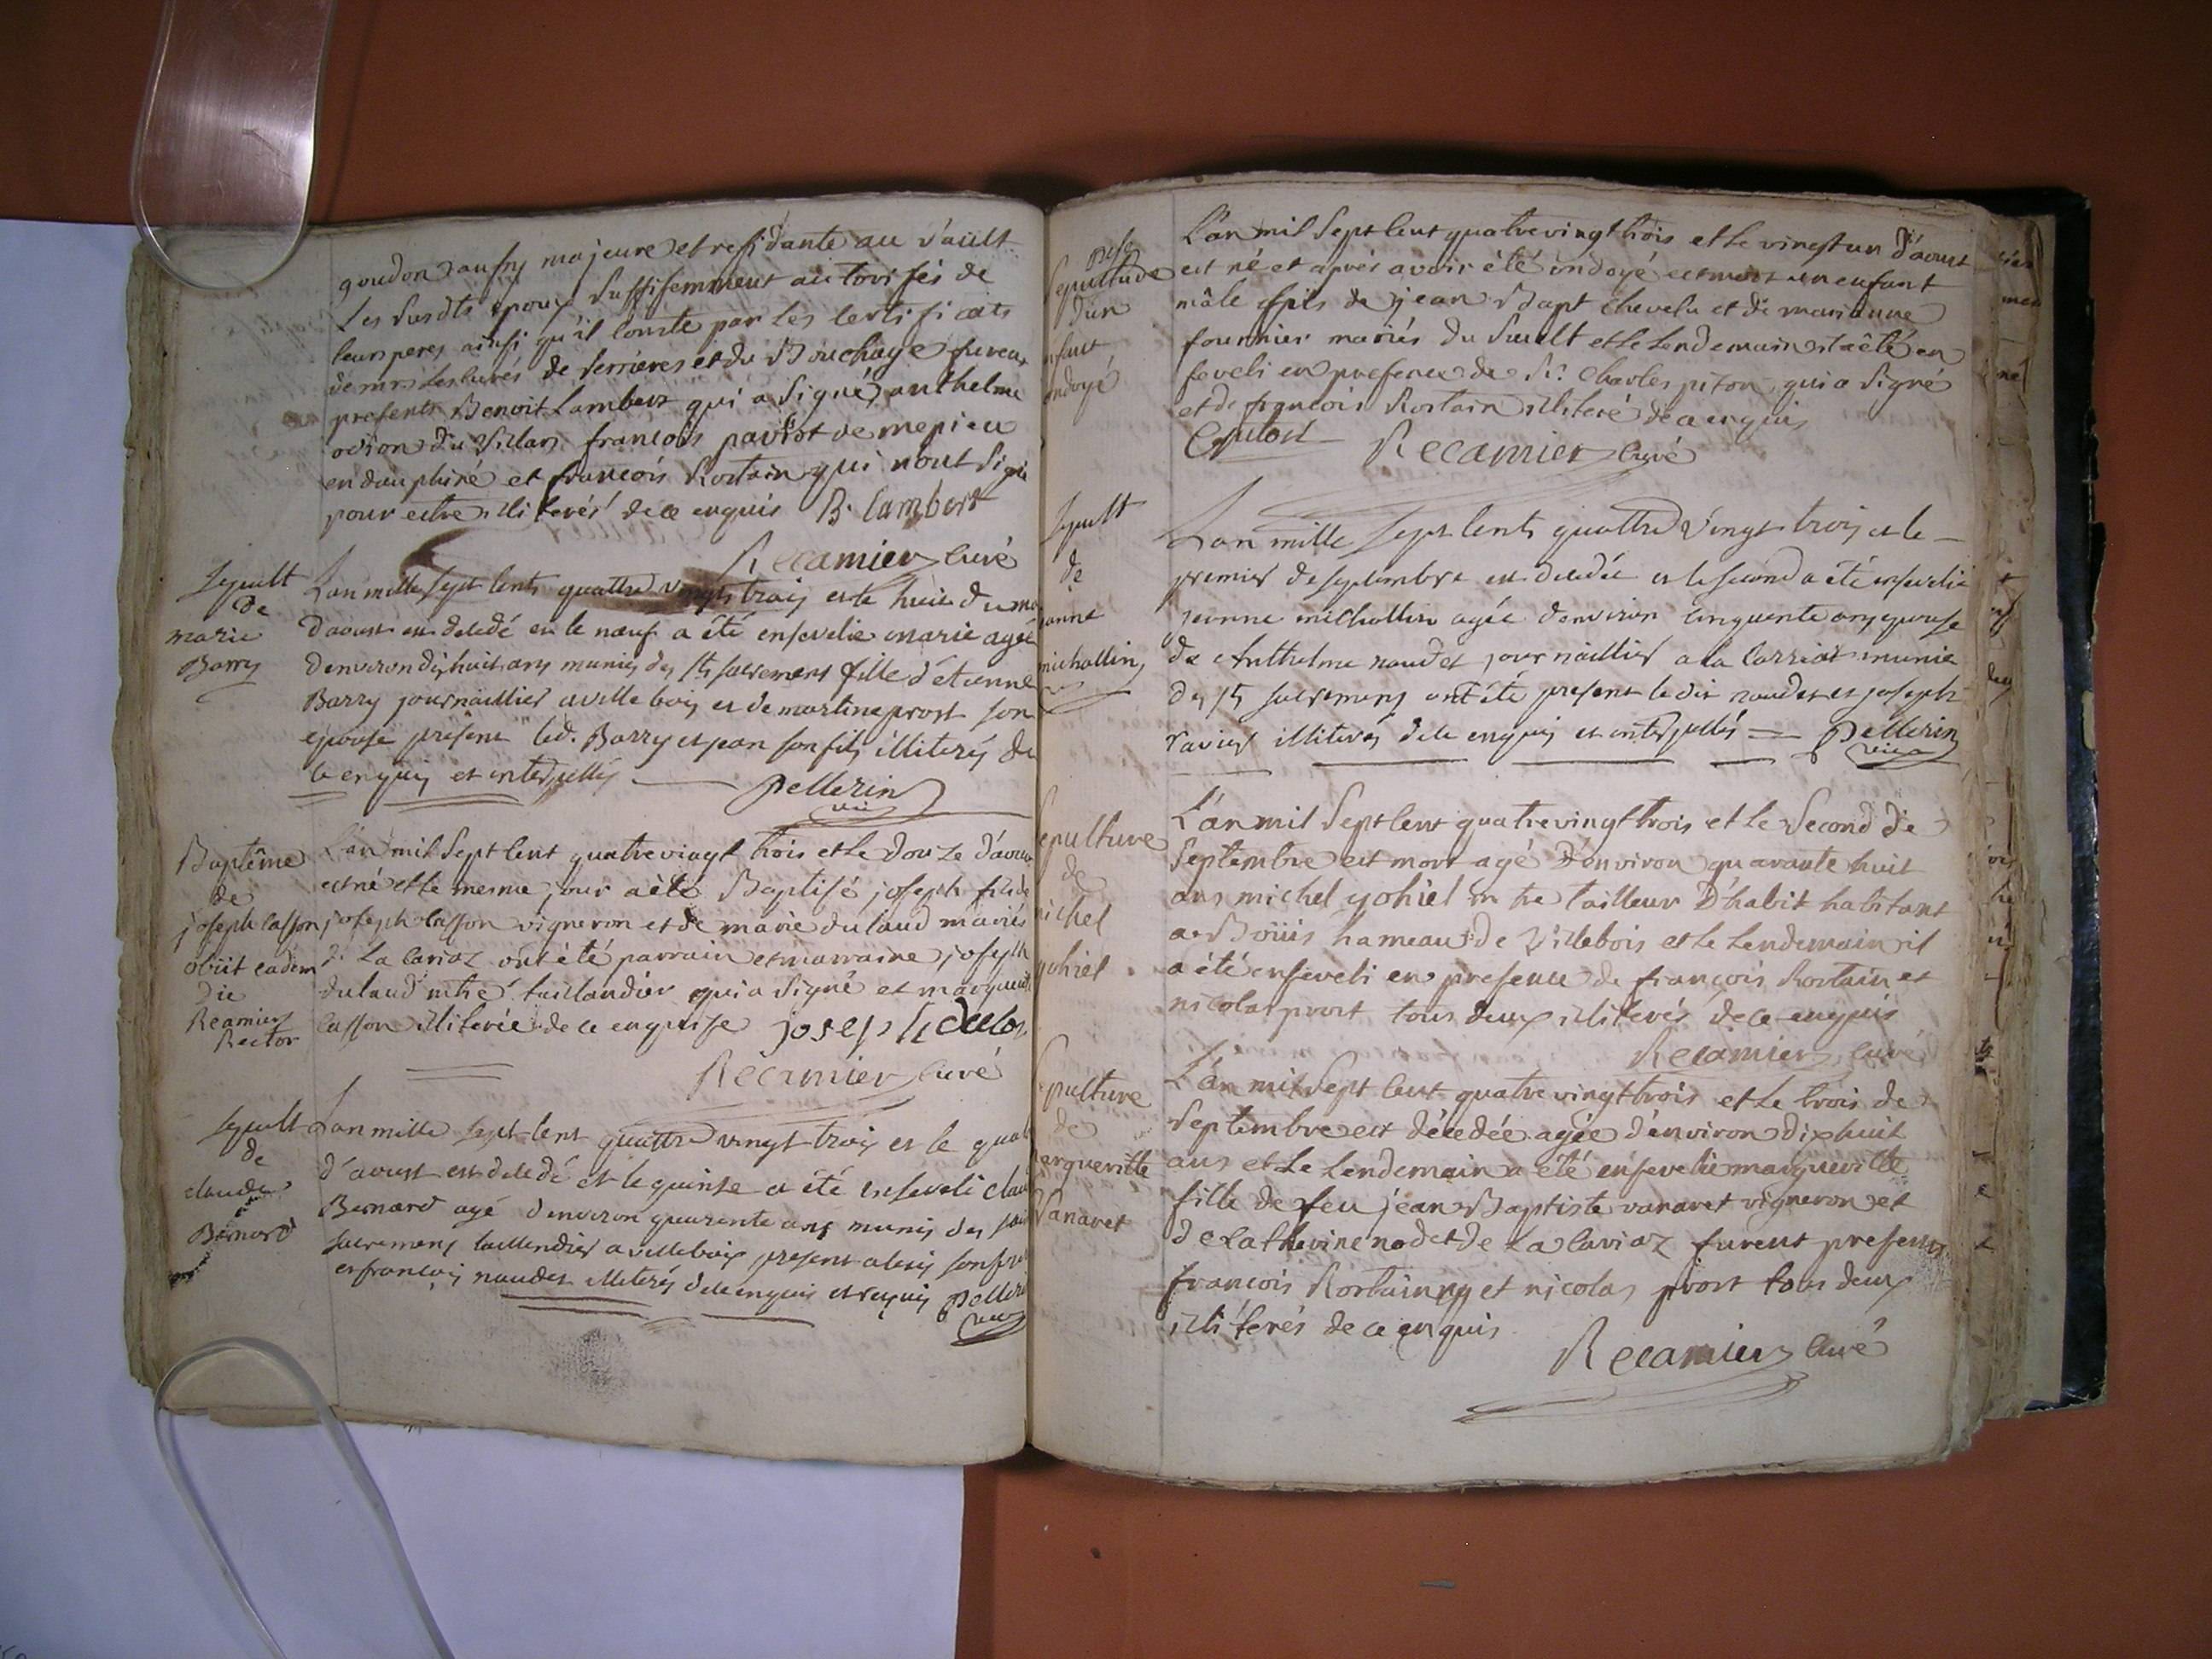 goudon aussy majeure et residante au Sault
Les susdts epoux suffisemment autorisés de
leurs peres ainsi qu'il conste par les certificats
de mrs les curés de serrieres et du Bouchage furent
presents Benoit Lambert qui a signé anthelme
odion du Villars françois paviot de mepieu
en dauphiné et françois Rostain qui n'ont signé
pour estre illiterés de ce enquis B. lambert
Recamier curé
sepult
de
marie
Barry
L'an mille sept cents quattre vingts trois et le huit du mo
d'aoust est decedé et le nœuf a été ensevelie marie agée
d'environ dix huit ans munies des sts sacrements fille d'étienne
Barry journaillier a villebois et de martine prost son
epouse présent led. Barry et jean son fils illiterés de
ce enquis et interpellés Pellerin
vic
Baptême
de
joseph Casson
obiit eadem
die
Recamier
Rector
L'an mil sept cent quatrevingt trois et le douze d'aoust
est né et le mesme jour a été Baptisé joseph fils de
joseph Casson vigneron et de marie dulaud mariés
de La Cariaz ont été parrain et marraine joseph
dulaud mtre taillandier qui a signé et marguerite
Casson illiterée de ce enquise joseph dulo
Recamier curé
sepult
de
claude
Bernard
L'an mille sept cent quattre vingt trois et le quat
d'aoust est decedé et le quinse a été enseveli clau
Bernard agé d'environ quarente ans munis des
sacremens taillendier a villebois present alexis son
et françois naudet illiterés de ce enquis et requis Pelleri
vic
Sepulture
d'un
enfant
ondoyé
L'an mil sept cent quatrevingt trois et le vingt un d'aoust
est né et aprés avoir été ondoyé est mort un enfant
mâle fils de jean Bapt chevelu et de marianne
fournier mariés du Sault et le lendemain il a été en
seveli en presence de Sr. Charles piton qui a signé
et de françois Rostain illiteré de ce enquis
Recamier curé
sepult
de
janne
michallin
L'an mille sept cents quattre vingt trois et le
premier de septembre est decedée et le second a été ensevelie
jeanne michallin agée d'environ cinquente ans epouse
de Anthelme naudet journaillier a la Carriat munie
des sts sacremens ont été present le dit naudet et joseph
ravier illiterés de ce enquis et interpellés Pellerin
vic
Sepulture
de
michel
gohiel
L'an mil sept cent quatrevingt trois et le second de
Septembre est mort agé d'environ quarante huit
ans michel gohiel mtre tailleur d'habit habitant
a Boüis hameau de Villebois et le lendemain il
a été enseveli en presence de françois Rostain et
nicolas prost tous deux illiterés de ce enquis
Recamier curé
Sepulture
de
marguerite
Vanaret
L'an mil sept cent quatre vingt trois et le trois de
Septembre est décedée agée d'environ dix huit
ans et le lendemain a été ensevelie marguerite
fille de feu jean Baptiste vanaret vigneron et
de Catherine nodet de La Cariaz furent presents
françois Rostain et nicolas prost tous deux
illiterés de ce enquis
Recamier curé